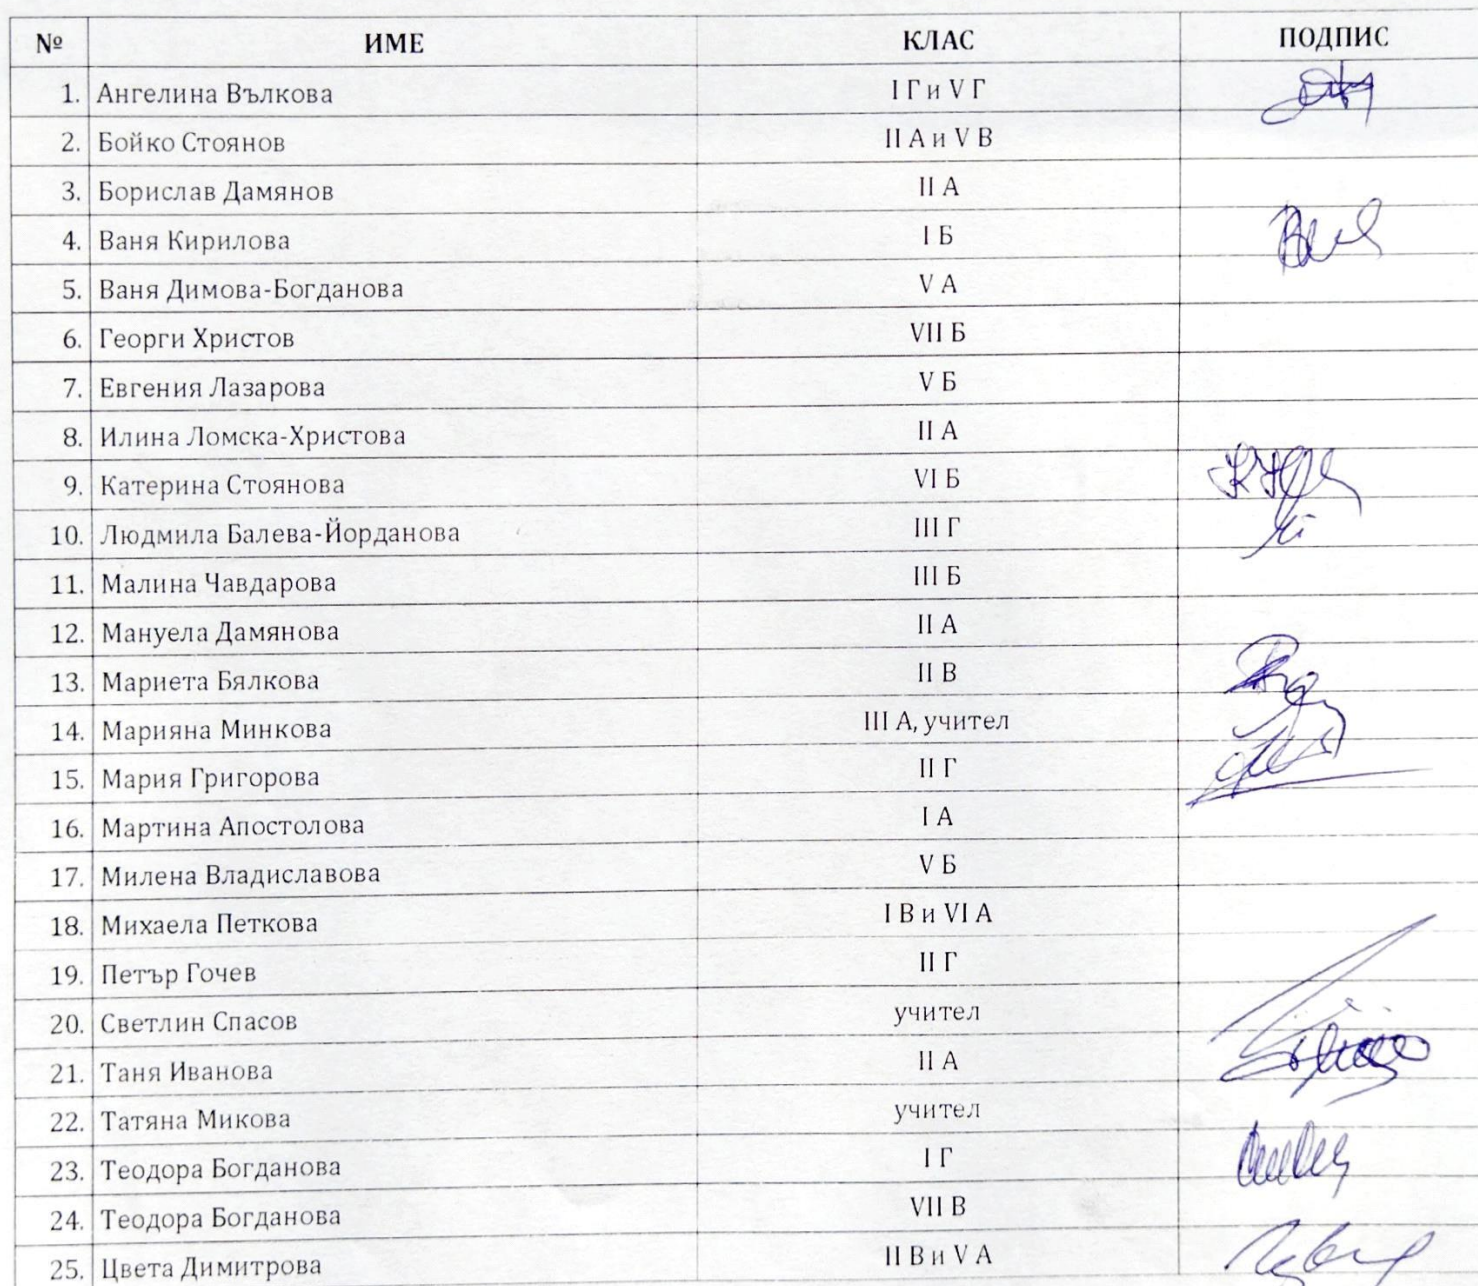 № ИМЕ КЛАС ПОДПИС
1. Ангелина Вълкова I Г и V Г
2. Бойко Стоянов II А и V В
3. Борислав Дамянов II А
4. Ваня Кирилова I Б
5. Ваня Димова-Богданова V А
6. Георги Христов VII Б
7. Евгения Лазарова V Б
8. Илина Ломска-Христова II А
9. Катерина Стоянова VI Б
10. Людмила Балева-Йорданова III Г
11. Малина Чавдарова III Б
12. Мануела Дамянова II А
13. Мариета Бялкова II В
14. Марияна Минкова III А, учител
15. Мария Григорова II Г
16. Мартина Апостолова I А
17. Милена Владиславова V Б
18. Михаела Петкова I В и VI А
19. Петър Гочев II Г
20. Светлин Спасов учител
21. Таня Иванова II А
22. Татяна Микова учител
23. Теодора Богданова I Г
24. Теодора Богданова VII В
25. Цвета Димитрова II В и V А